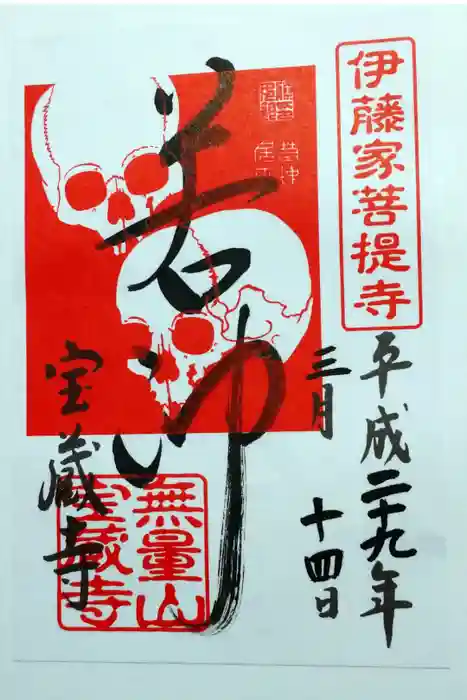 伊藤家菩提寺
平成二十九年
三月
十四日
若冲
宝蔵寺
無量山
宝蔵寺